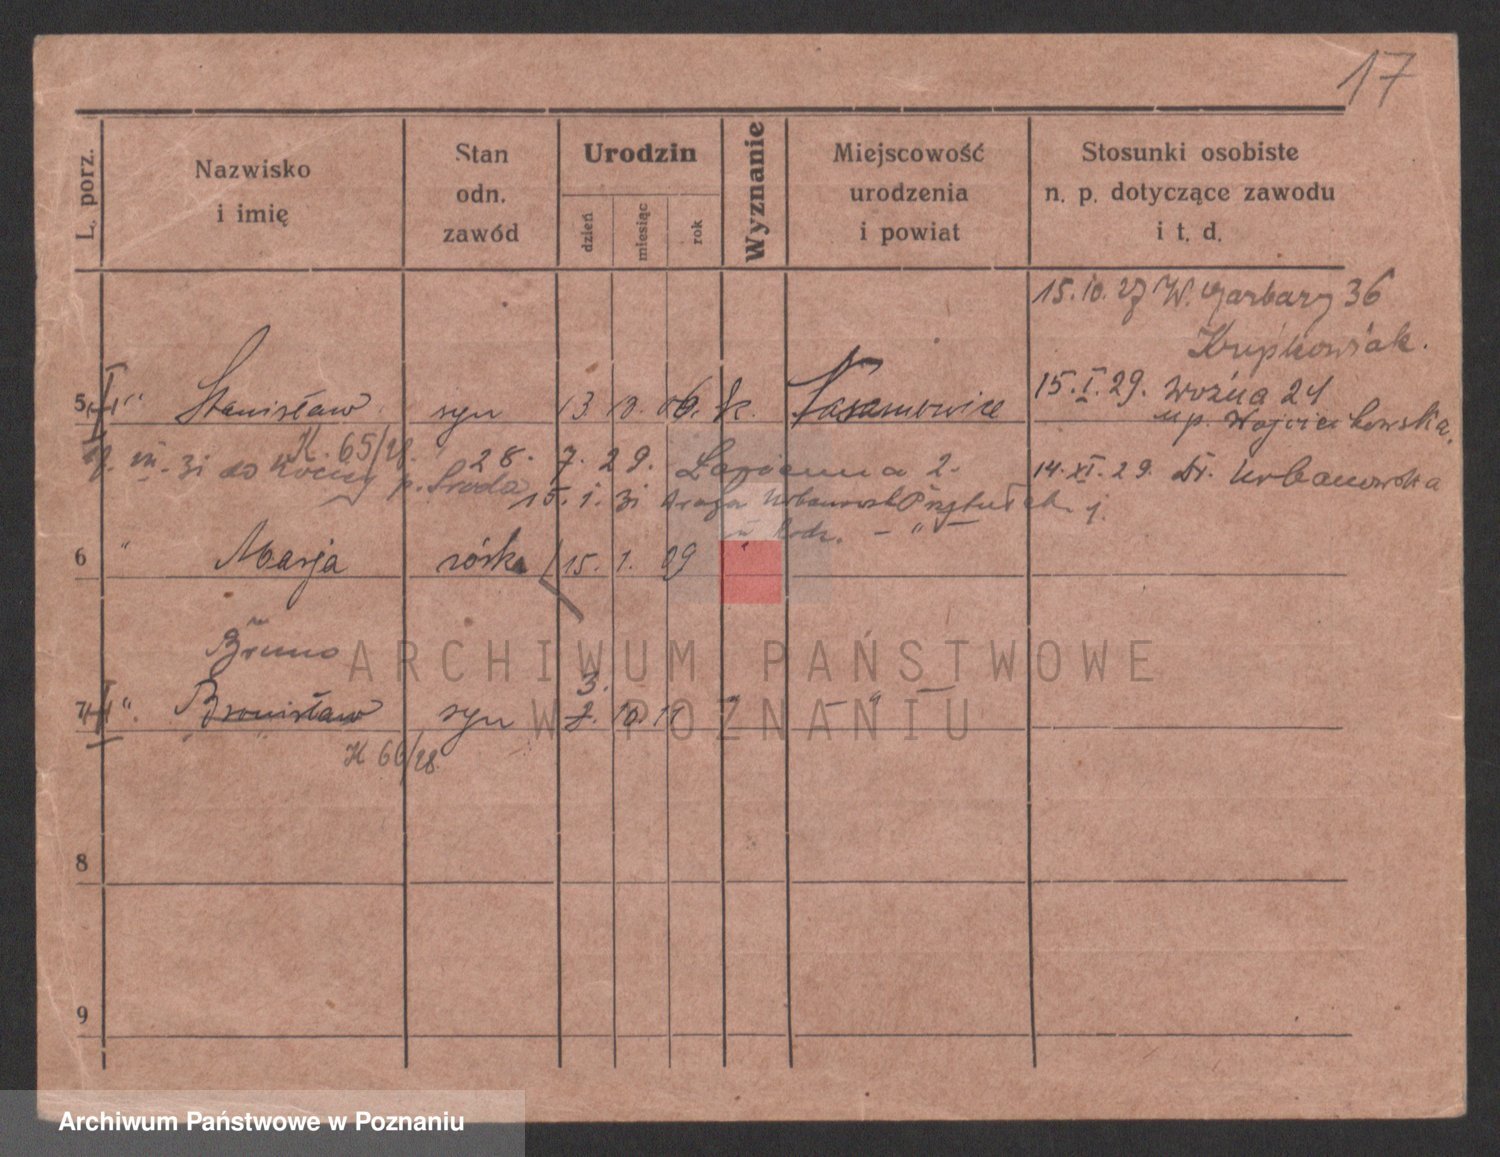 17
L. porz.
Nazwisko
i imię
Stan
odn.
zawód
Urodzin
dzień
miesiąc
rok
Wyznanie
Miejscowość
urodzenia
i powiat
Stosunki osobiste
n. p. dotyczące zawodu
i t. d.
15.10.27 W. Garbary 36
Krupkowiak.
5 " Stanisław syn 13 10. 06. k.
15.I.29. Woźna 21
u p. Wojciechowska.
K. 65/28.
VII. 31 do p. Środa
28. 7. 29. 2.
14.XI.29. Dr. Urbanowska
15.1.31
6 " Marja córka 15. 1. 09 "
Bruno
3.
7 " Bronisław syn 2. 10. 11 " — " —
K 66/28
8
9
ARCHIWUM PAŃSTWOWE
W POZNANIU
Archiwum Państwowe w Poznaniu